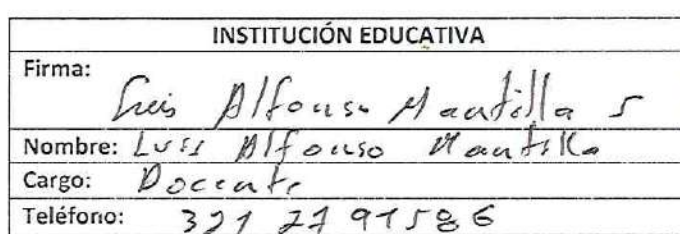 INSTITUCIÓN EDUCATIVA
Firma:
Luis Alfonso Mantilla S
Nombre: Luis Alfonso Mantilla
Cargo: Docente
Teléfono: 321 2791586